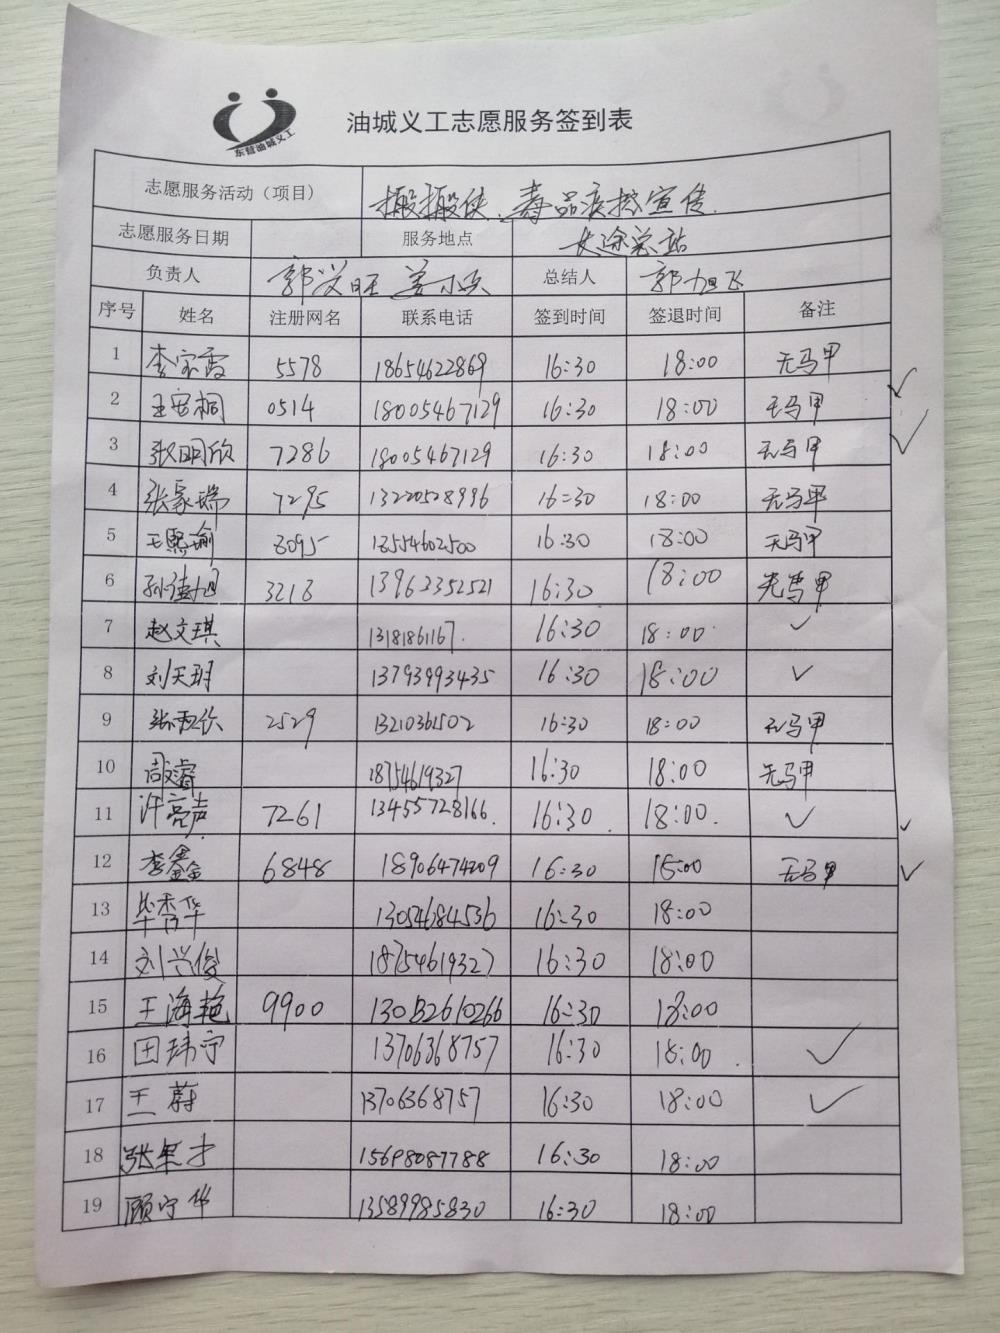 东营油城义工
油城义工志愿服务签到表
志愿服务活动（项目） 搬搬侠、毒品危害宣传
志愿服务日期 服务地点 长途总站
负责人 郭兴旺 姜小兵 总结人 郭旭飞
序号 姓名 注册网名 联系电话 签到时间 签退时间 备注
1 李家霞 5578 18654622869 16:30 18:00 无马甲
2 王安桐 0514 18005467129 16:30 18:00 无马甲 ✓
3 张明欣 7286 18005467129 16:30 18:00 无马甲 ✓
4 张家瑞 7295 13220528996 16:30 18:00 无马甲
5 王熙瑜 8095 18554602500 16:30 18:00 无马甲
6 孙佳旭 3218 13962352521 16:30 18:00 无马甲
7 赵文琪 13181861167. 16:30 18:00 ✓
8 刘天玥 13793993435 16:30 18:00 ✓
9 张雨欣 2529 13210361502 16:30 18:00 无马甲
10 周睿 18754619327 16:30 18:00 无马甲
11 许亮声 7261 13455728166. 16:30. 18:00. ✓ ✓
12 李鑫 6848 18906474209 16:30 15:00 无马甲 ✓
13 毕秀华 13054684536 16:30 18:00
14 刘兴俊 18754619327 16:30 18:00
15 王海艳 9900 16:30 18:00
16 田玮宁 13706368757 16:30 18:00. ✓
17 王蔚 13706368757 16:30 18:00 ✓
18 张果才 15698087788 16:30 18:00
19 顾宁华 13589985830 16:30 18:00